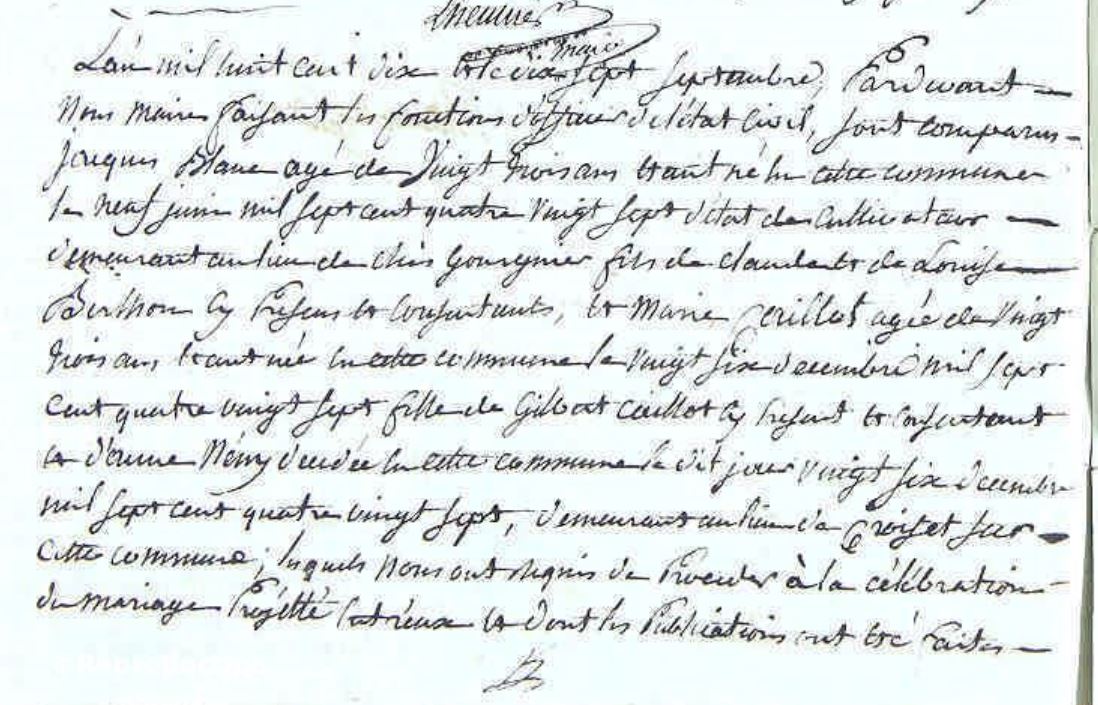 maire
L'an mil huit cent dix et le dix sept septembre, Pardevant
Nous maire faisant les fonctions d'officier de l'état civil, sont comparus
jacques Blanc agé de vingt trois ans etant né en cette commune
le neuf juin mil sept cent quatre vingt sept d'état de cultivateur
demeurant au lieu de chés fils de claude et de Louise
Berthon cy presens et consentants, et Marie Caillot agée de vingt
trois ans, etant née en cette commune le vingt six decembre mil sept
cent quatre vingt sept fille de Gilbert caillot cy present et consentant
et d'anne Némy decedée en cette commune le dit jour vingt six decembre
mil sept cent quatre vingt sept, demeurant au lieu de Croizet sur
cette commune; lesquels nous ont requis de Proceder à la célébration
du mariage Projetté entr'eux et dont les Publications ont eté faites